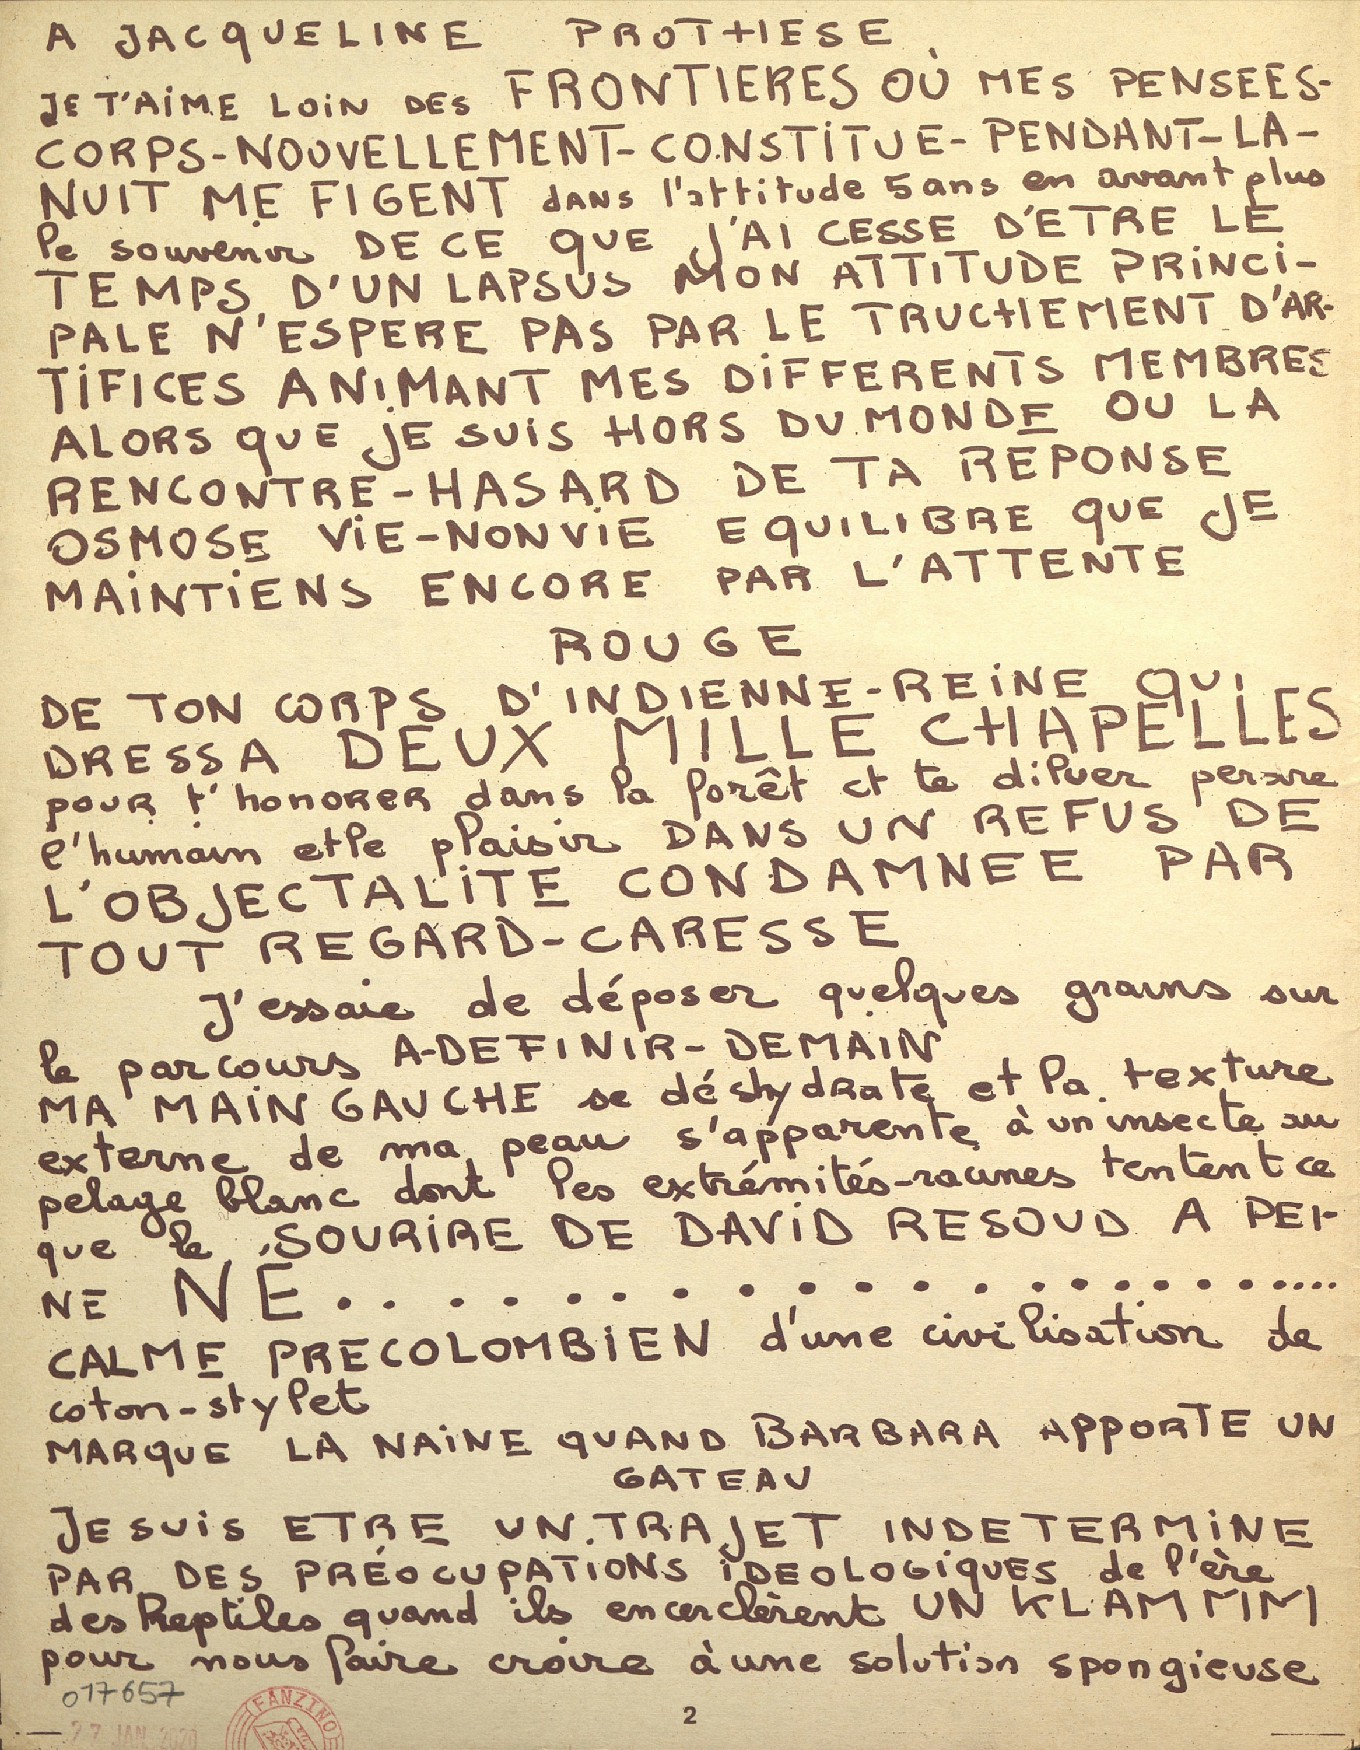 A JACQUELINE PROTHESE
JE T'AIME LOIN DES FRONTIERES OÙ MES PENSEES-
CORPS-NOUVELLEMENT-CONSTITUE-PENDANT-LA-
NUIT ME FIGENT DANS l'attitude 5 ans en avant plus
le souvenir DE CE QUE J'AI CESSE D'ETRE LE
TEMPS D'UN LAPSUS MON ATTITUDE PRINCI-
PALE N'ESPERE PAS PAR LE TRUCHEMENT D'AR-
TIFICES ANIMANT MES DIFFERENTS MEMBRES
ALORS QUE JE SUIS HORS DU MONDE OU LA
RENCONTRE-HASARD DE TA REPONSE
OSMOSE VIE-NONVIE EQUILIBRE QUE JE
MAINTIENS ENCORE PAR L'ATTENTE
ROUGE
DE TON CORPS D'INDIENNE-REINE QUI
DRESSA DEUX MILLE CHAPELLES
POUR t'honorer dans la forêt et te diluer
l'humain et le plaisir DANS UN REFUS DE
L'OBJECTALITE CONDAMNEE PAR
TOUT REGARD-CARESSE
J'essaie de déposer quelques grains sur
le parcours A-DEFINIR-DEMAIN
MA MAIN GAUCHE se déshydrate et la texture
externe de ma peau s'apparente à un insecte au
pelage blanc dont les extrémités-racines tentent ce
que le SOURIRE DE DAVID RESOUD A PEI-
NE NÉ......................
CALME PRECOLOMBIEN d'une civilisation de
coton-stylet
MARQUE LA NAINE QUAND BARBARA APPORTE UN
GATEAU
JE SUIS ETRE UN TRAJET INDETERMINE
PAR DES PRÉOCUPATIONS IDEOLOGIQUES de l'ère
des Reptiles quand ils encerclèrent UN KLAMMMI
pour nous faire croire à une solution spongieuse
017657
27 JAN. 2020
FANZINO
2